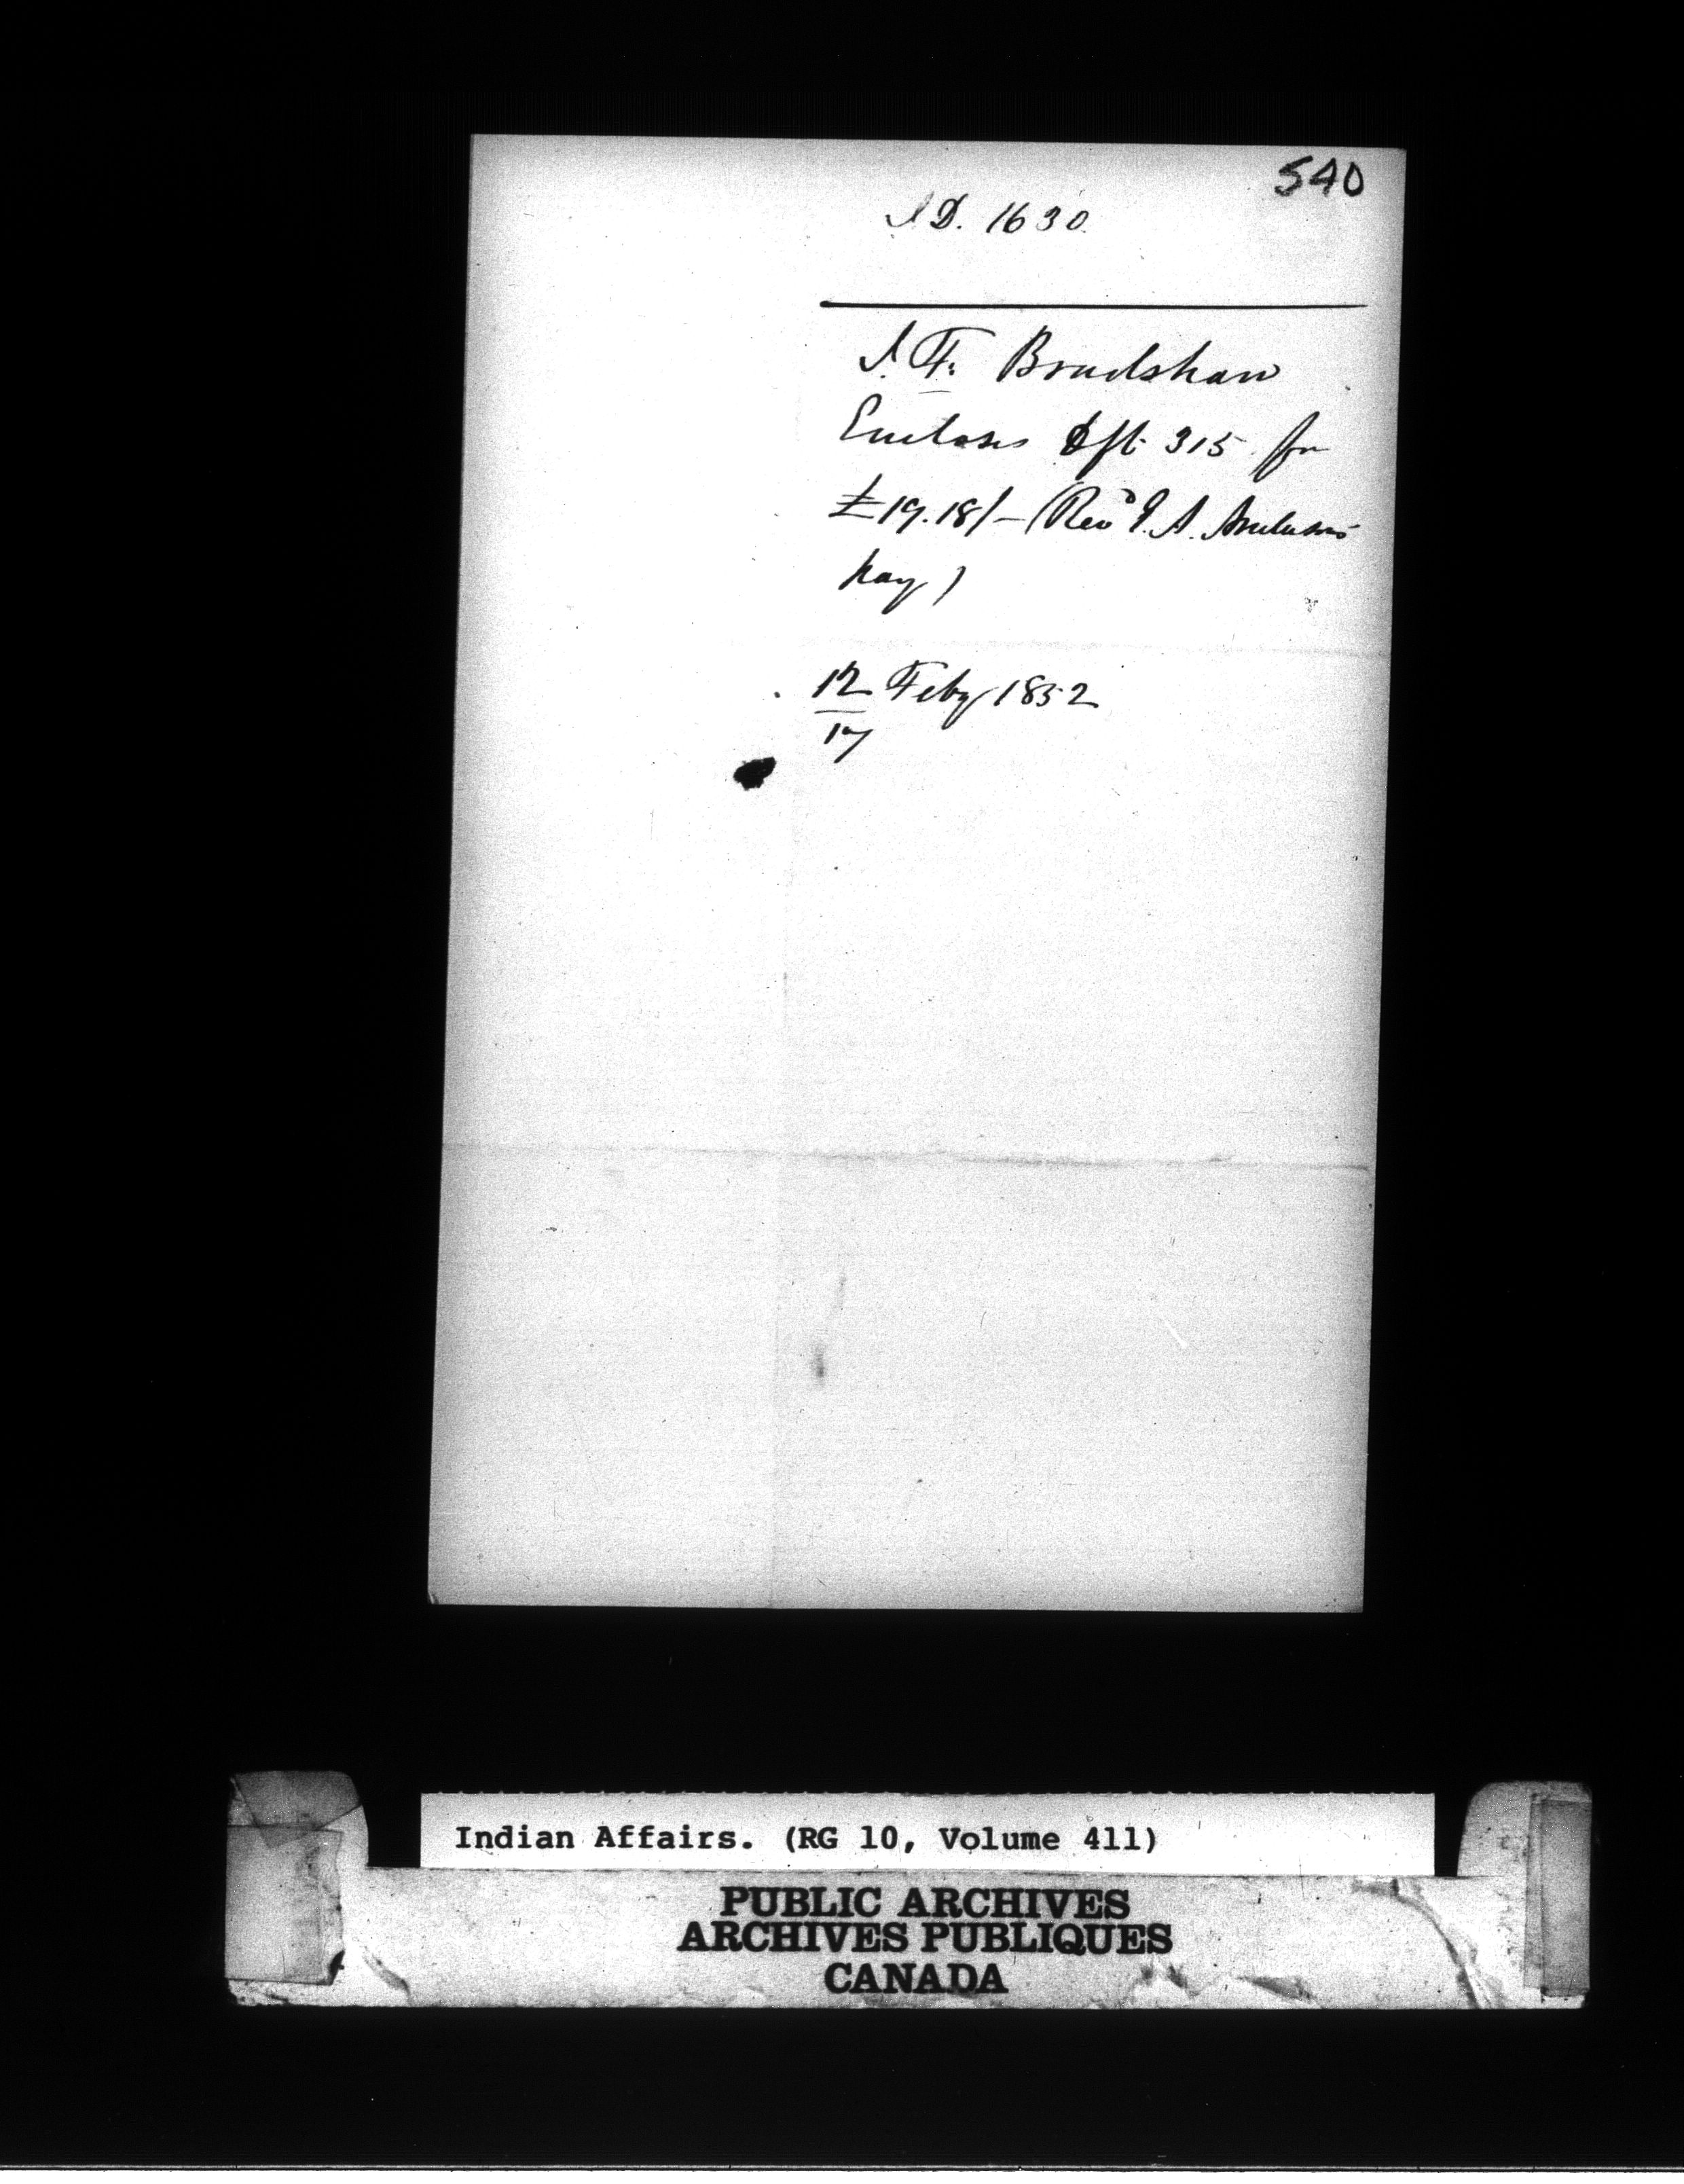 540
I D. 1630.
J. F. Bradshaw
Encloses Dft 315 for
£19.18/- (Revd J. A. Anderson's
pay)
12 Feby 1852
17
Indian Affairs. (RG 10, Volume 411)
PUBLIC ARCHIVES
ARCHIVES PUBLIQUES
CANADA